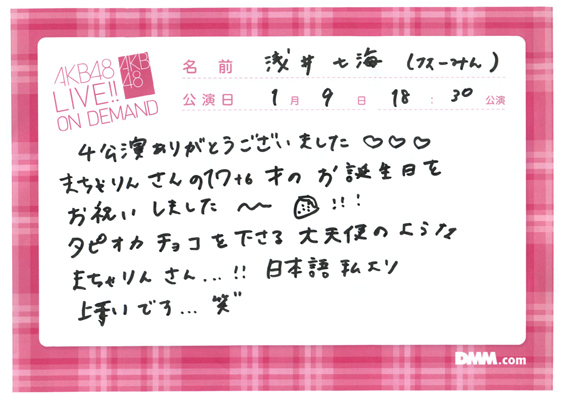 AKB48
LIVE!!
ON DEMAND
AKB
48
名前 浅井七海 (ナスーみん)
公演日 1月9日 18:30公演
4公演ありがとうございました♡♡♡
まちゃりんさんの17+6才のお誕生日を
お祝いしました〜〜 !!!
タピオカチョコを下さる大天使のような
まちゃりんさん...!! 日本語私より
上手いです...笑
DMM.com